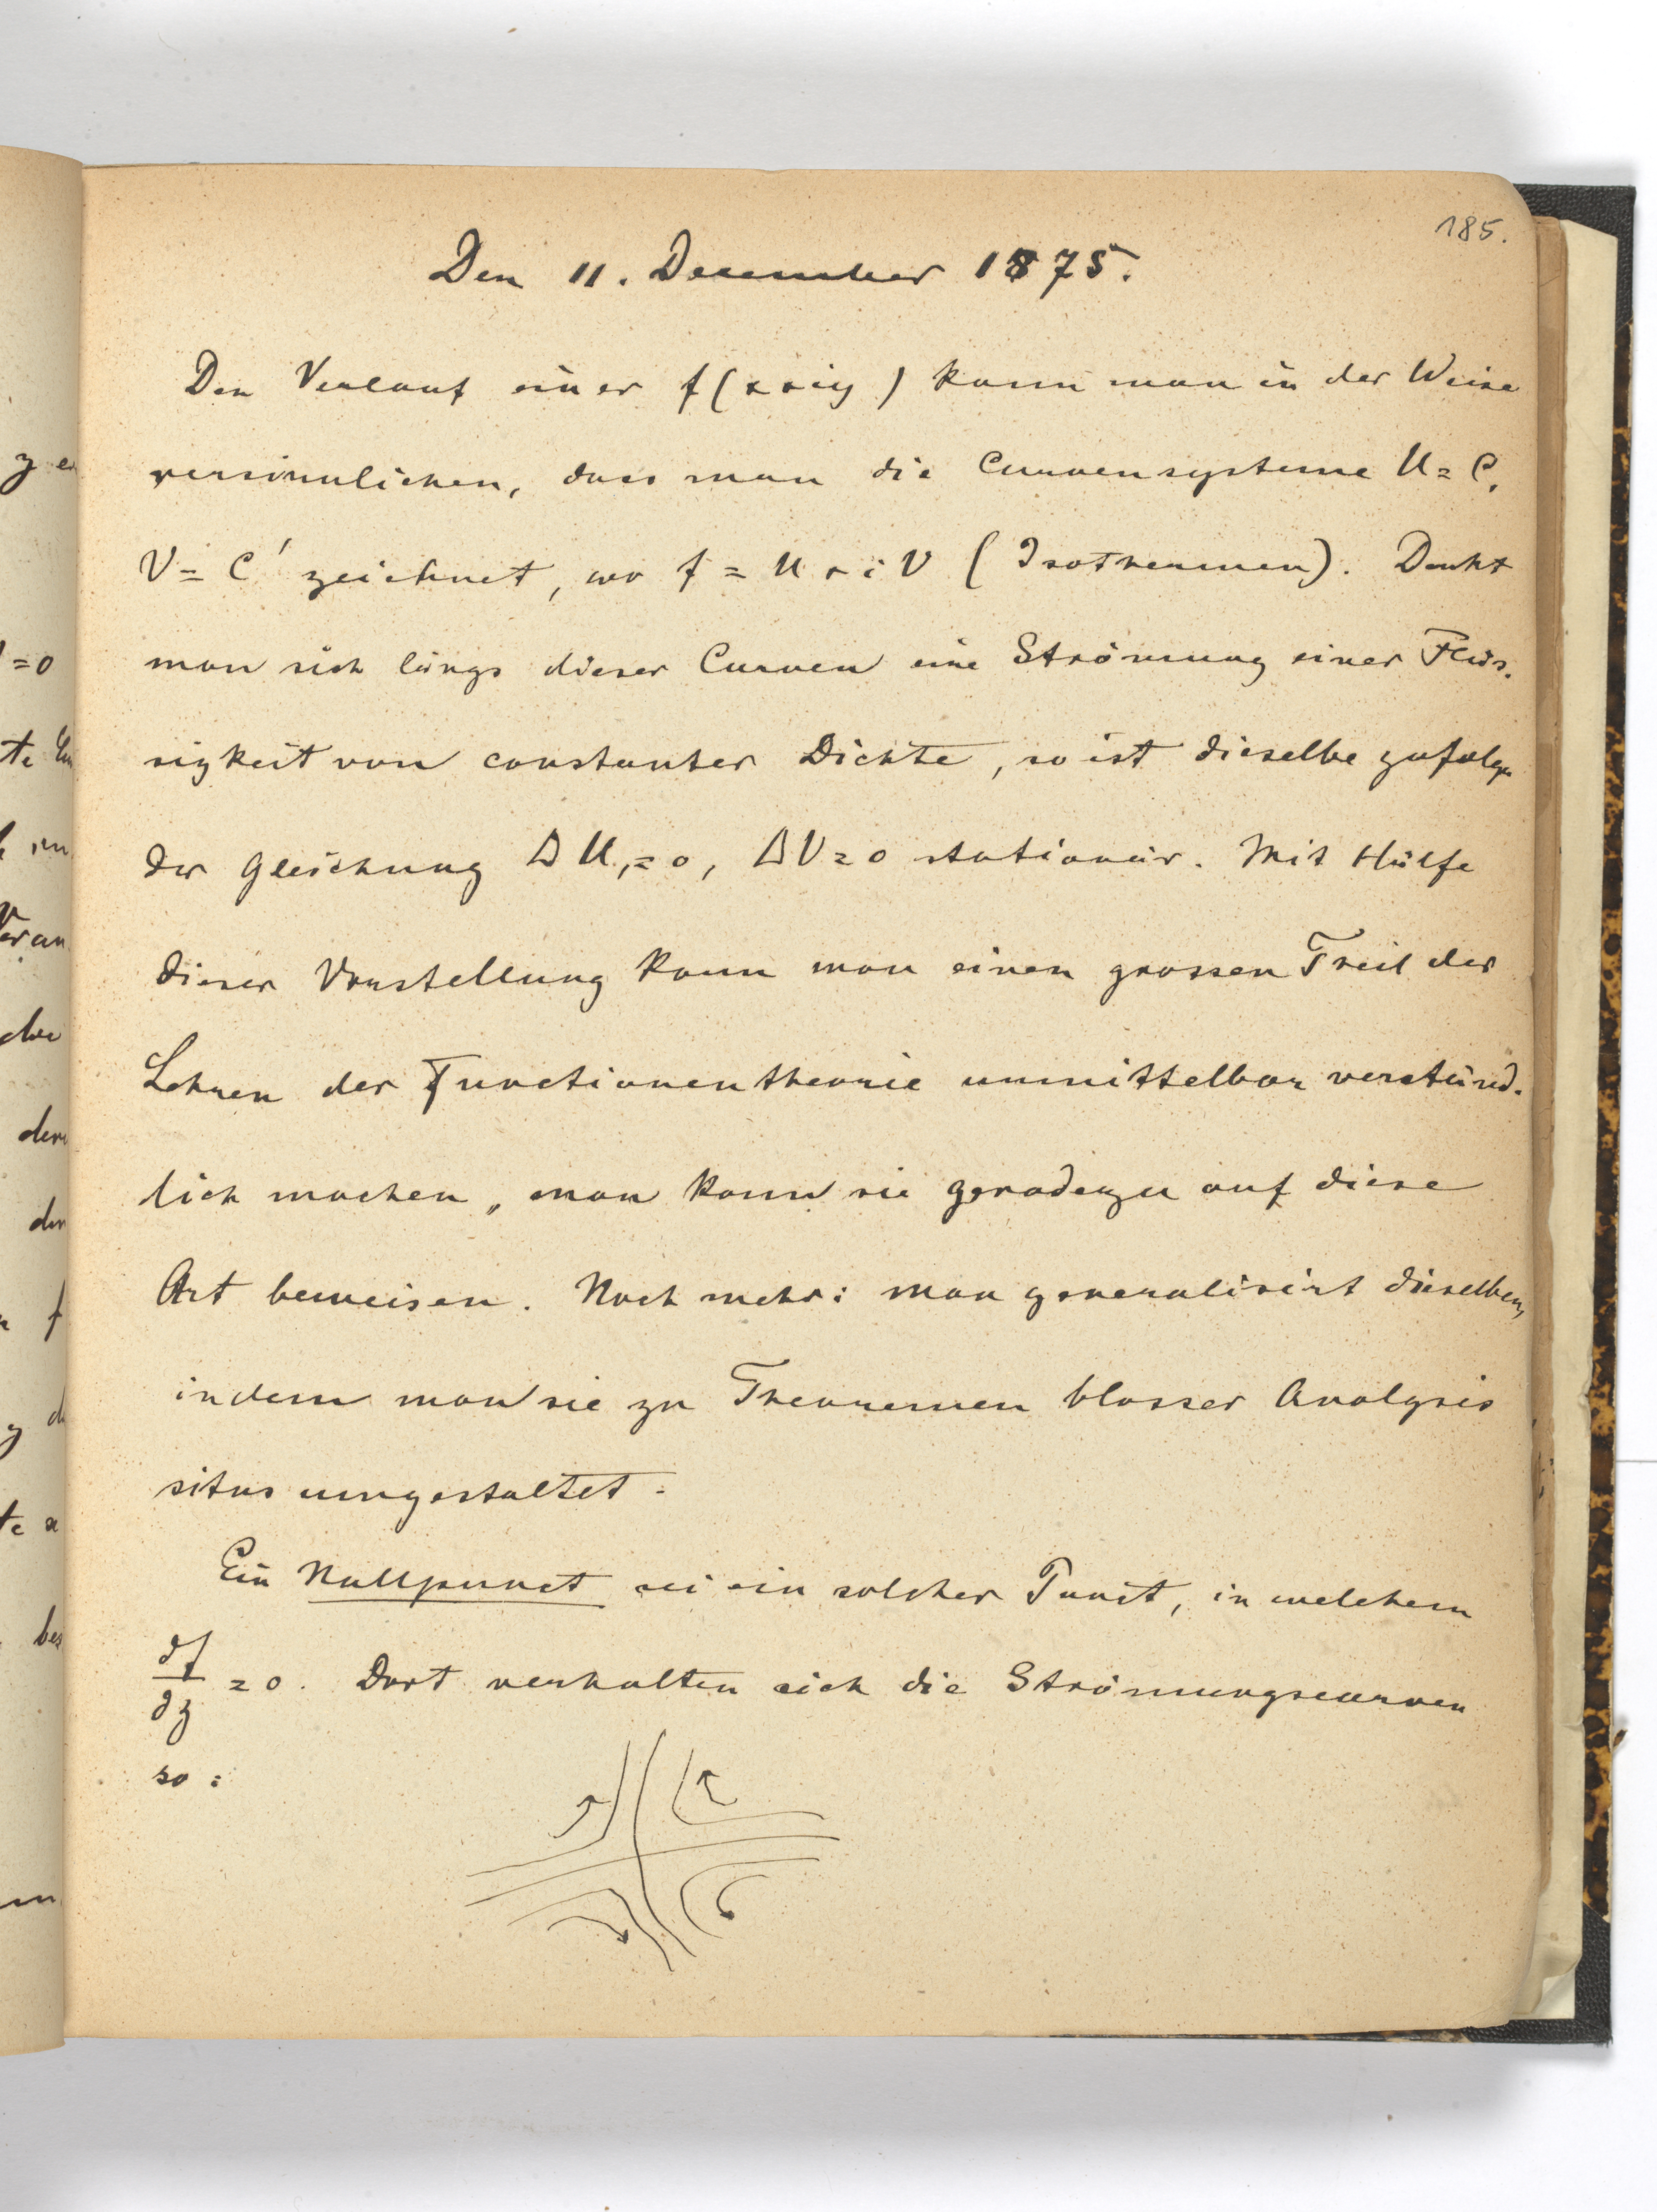 185.
Den 11. December 1875.
Den Verlauf einer f(x+iy) kann man in der Weise
versinnlichen, dass man die Curvensysteme U = C,
V = C' zeichnet, wo f = U + i V (Isothermen). Denkt
man sich längs dieser Curven eine Strömung einer Flüs-
sigkeit von constanter Dichte, so ist dieselbe zufolge
der Gleichung Δ U = 0, Δ V = 0 stationär. Mit Hülfe
dieser Vorstellung kann man einen grossen Theil der
Lehren der Functionentheorie unmittelbar verständ-
lich machen, man kann sie geradezu auf diese
Art beweisen. Noch mehr: man generalisirt dieselben,
indem man sie zu Theoremen blosser Analysis
situs umgestaltet.
Ein Nullpunct sei ein solcher Punct, in welchem
∂f/∂z = 0. Dort verhalten sich die Strömungscurven
so: